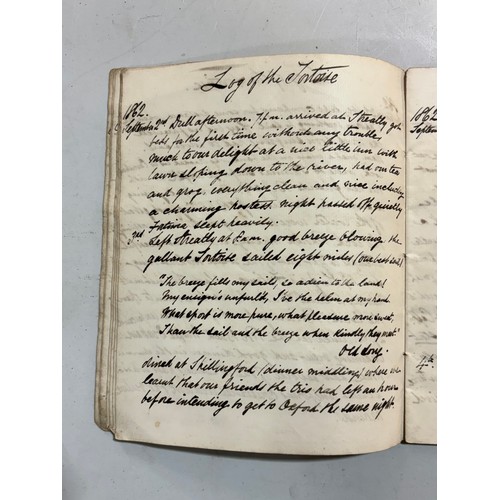 Log of the Tortoise
1862.
September 2nd Dull afternoon. 7 p.m. arrived at Streatly got
beds for the first time without any trouble,
much to our delight at a nice little inn with
lawn sloping down to the river, had our tea
and grog, everything clean and nice including
a charming hostess. night passed off quietly
slept heavily.
3rd
Left Streatly at 8 a.m. good breeze blowing, the
gallant Tortoise sailed eight miles (our best sail)
"The breeze fills my sail, so adieu to the land!
My ensign's unfurl'd, I've the helm at my hand
What sport is more pure, what pleasure more sweet,
Than the sail and the breeze when kindly they meet"
Old Song.
dined at Shillingford (dinner middling) where we
learnt that our friends the trio had left an hour
before intending to get to Oxford the same night.
1862
Septem
4th